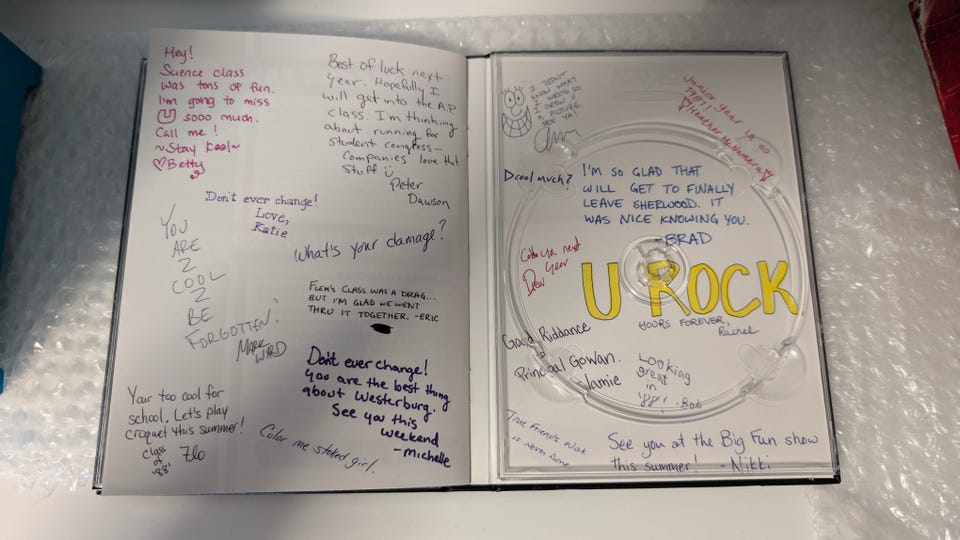 Hey!
Science class
was tons of fun.
I'm gong to miss
U sooo much.
Call me!
~Stay Kool~
♡Betty
Best of luck next
year. Hopefully I
will get into the AP
class. I'm thinking
about running for
student congress–
Companies love that
stuff
Peter
Dawson
Don't ever change!
Love,
Katie
What's your damage?
YOU
ARE
2
COOL
2
BE
FORGOTTEN!
MARK
WARD
FLEM'S CLASS WAS A DRAG...
BUT I'M GLAD WE WENT
THRU IT TOGETHER. -ERIC
Don't ever change!
You are the best thing
about Westerburg.
See you this
weekend
-michelle
Your too cool for
school. Let's play
croquet this summer!
Class
of
'88'
Flo
Color me stoked girl.
I DIDN'T
KNOW WHAT
2 WRITE SO
I DREW U
A PICTURE
SEE YA!
Junior Year is so
1987!
♡Heather McNamara♡
Drool much?
I'M SO GLAD THAT
WILL GET TO FINALLY
LEAVE SHERWOOD. IT
WAS NICE KNOWING YOU.
-BRAD
Catch ya next
year
Drew
U ROCK
YOURS FOREVER,
Rachel
Good Riddance
to
Principal Gowan.
-Jamie
Looking
great
in
'88'! -Rob
True Friend's Work
is Never Done.
See you at the Big Fun show
this summer! -Nikki